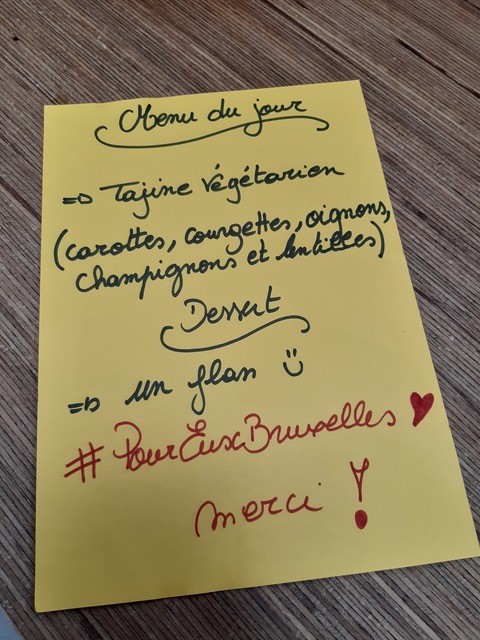 Menu du jour
=> Tajine végétarien
(carottes, courgettes, oignons,
champignons et lentilles)
Dessert
=> un flan :)
#PourEuxBruxelles ♥
merci !